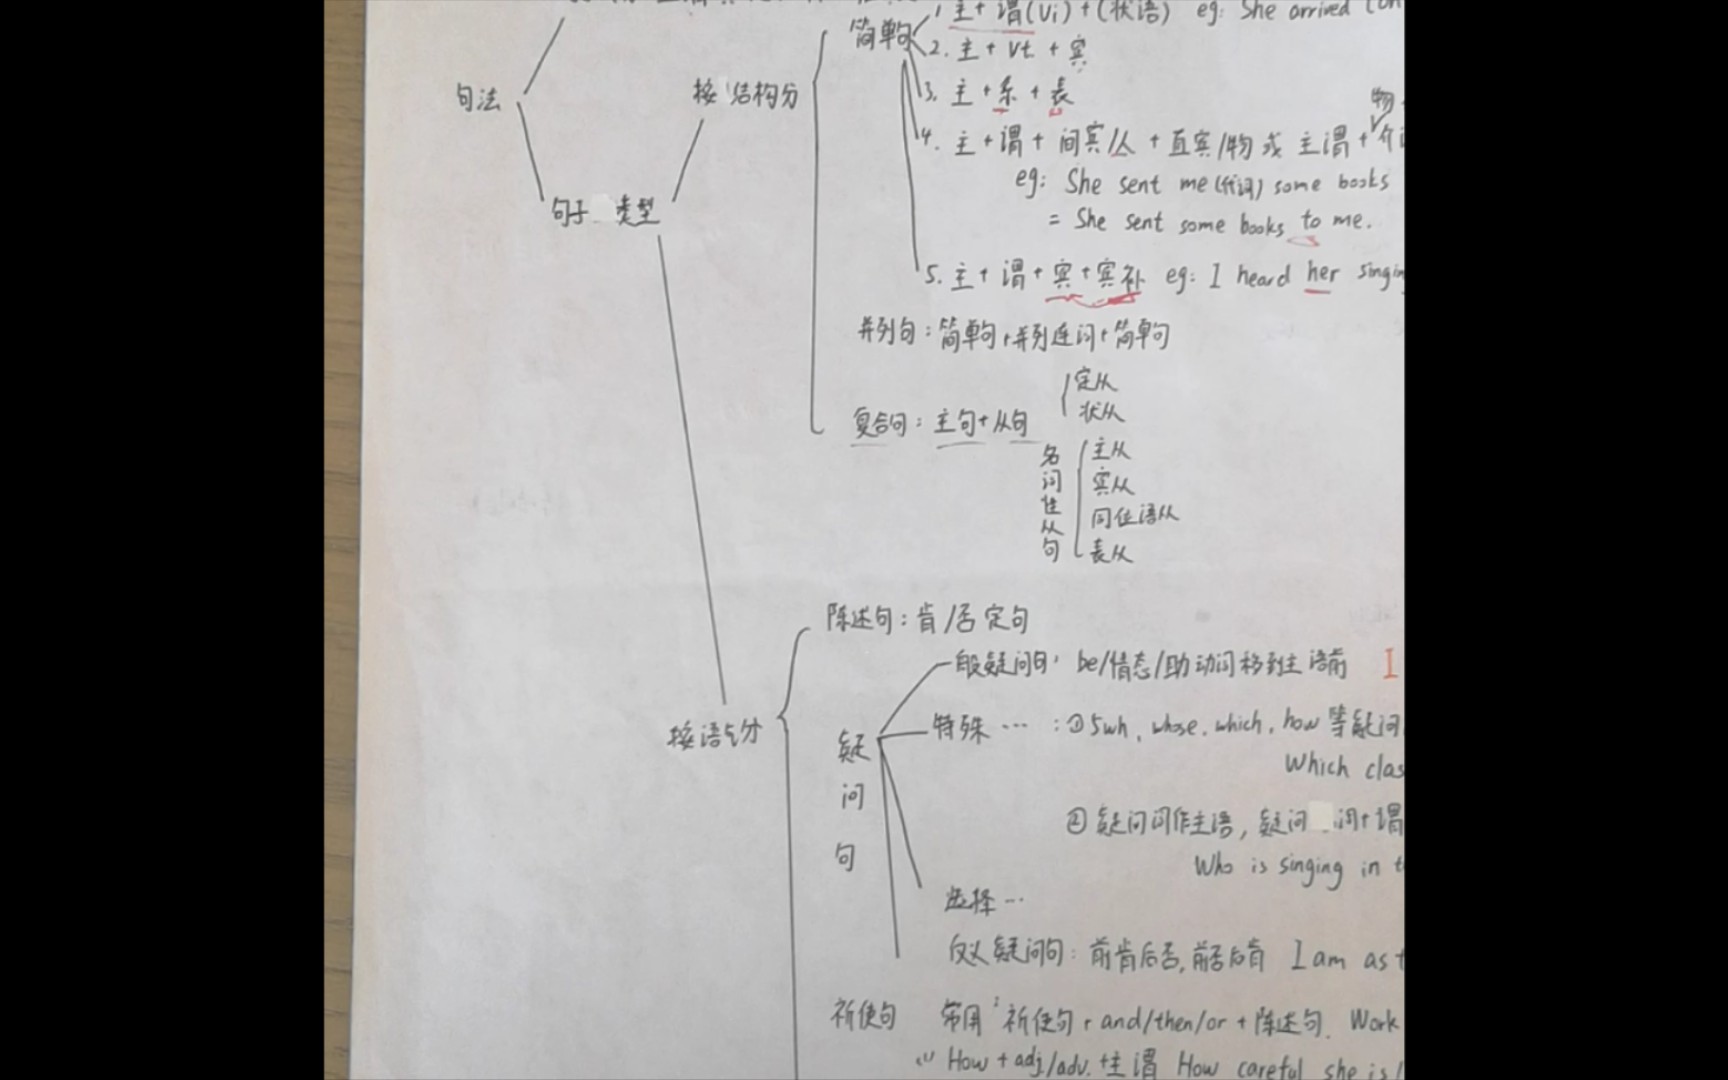 简单句
1. 主+谓(Vi)+(状语) eg: She arrived (on
2. 主+Vt+宾
句法
按结构分
3. 主+系+表
物
4. 主+谓+间宾/人+直宾/物 或 主谓+介
eg: She sent me(代词) some books
句子类型
= She sent some books to me.
5. 主+谓+宾+宾补 eg: I heard her singing
并列句:简单句+并列连词+简单句
定从
状从
复合句:主句+从句
名词性从句
主从
宾从
同位语从
表从
陈述句:肯/否定句
一般疑问句: be/情态/助动词移到主语前 I
按语气分
特殊…:①5wh, whose, which, how等疑问
疑问句
Which clas
②疑问词作主语,疑问词+谓
Who is singing in t
选择…
反义疑问句:前肯后否,前否后肯 I am as t
祈使句 常用:祈使句+and/then/or+陈述句. Work
(1) How+adj/adv.+主谓 How careful she is!